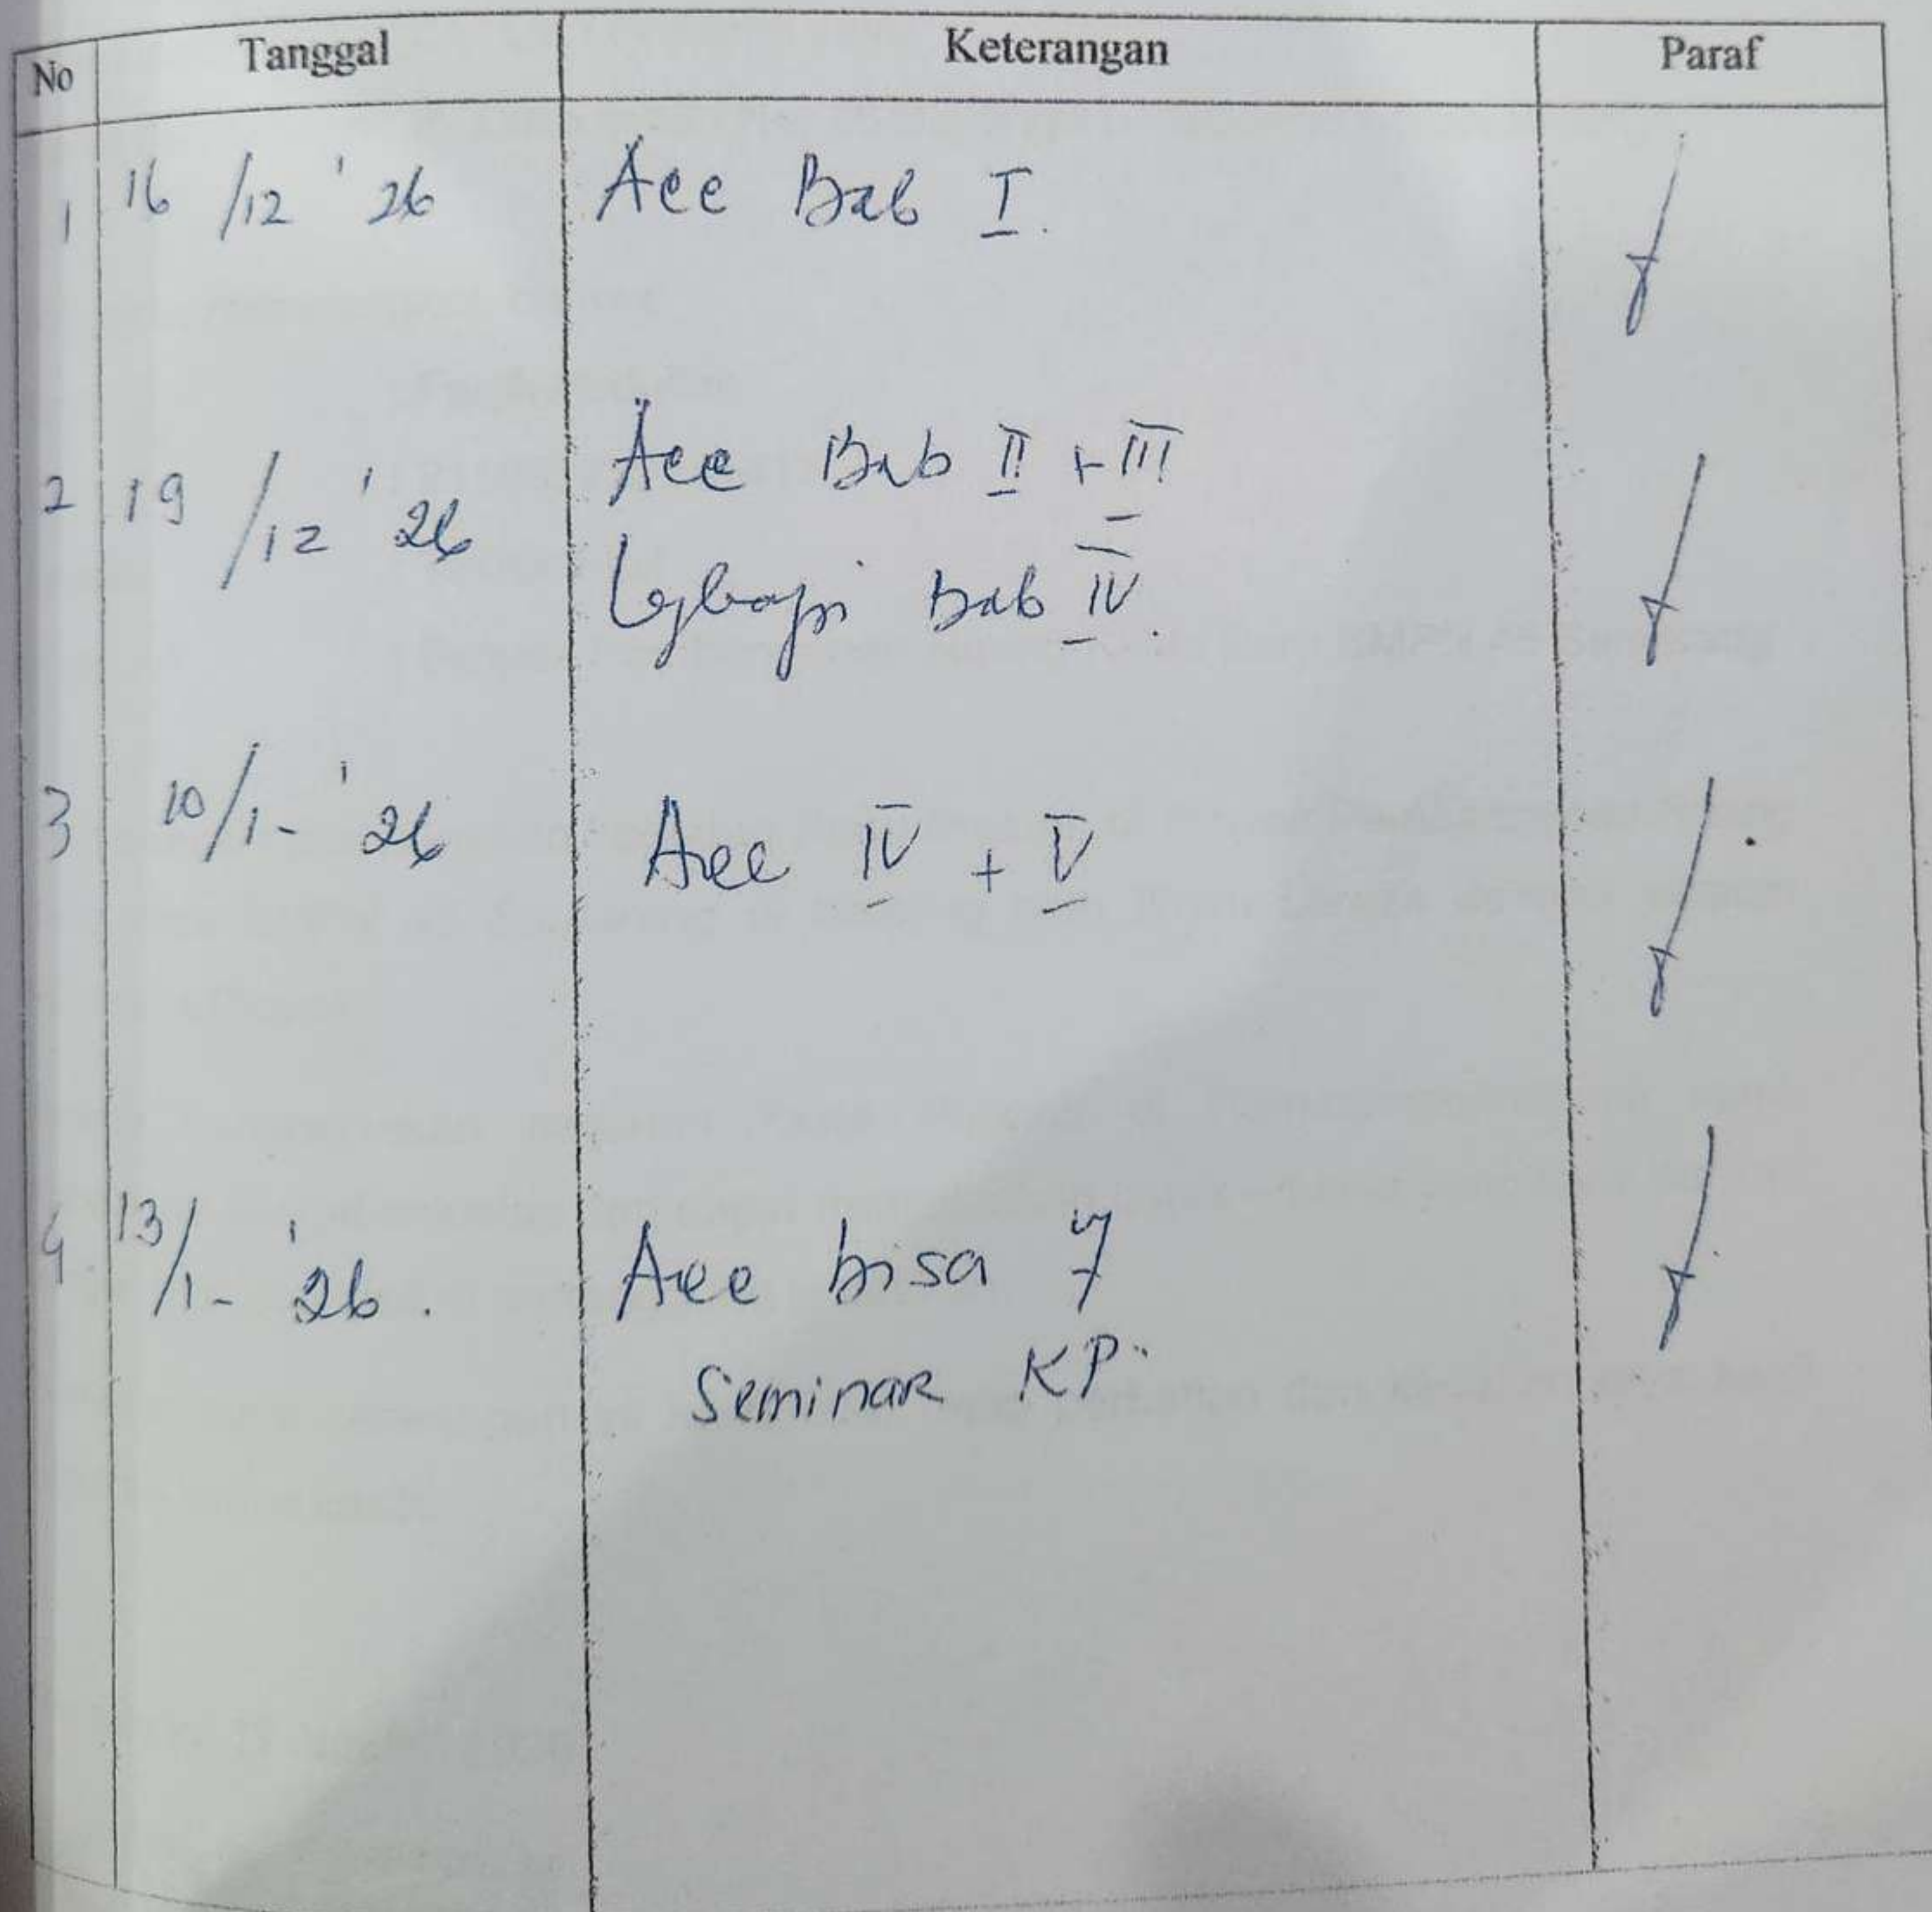 No Tanggal Keterangan Paraf
1 16/12 '26 Acc Bab I.
2 19/12 '26 Acc Bab II + III
Lengkapi Bab IV.
3 10/1- '26 Acc IV + V
4 13/1- '26. Acc bisa
Seminar KP.